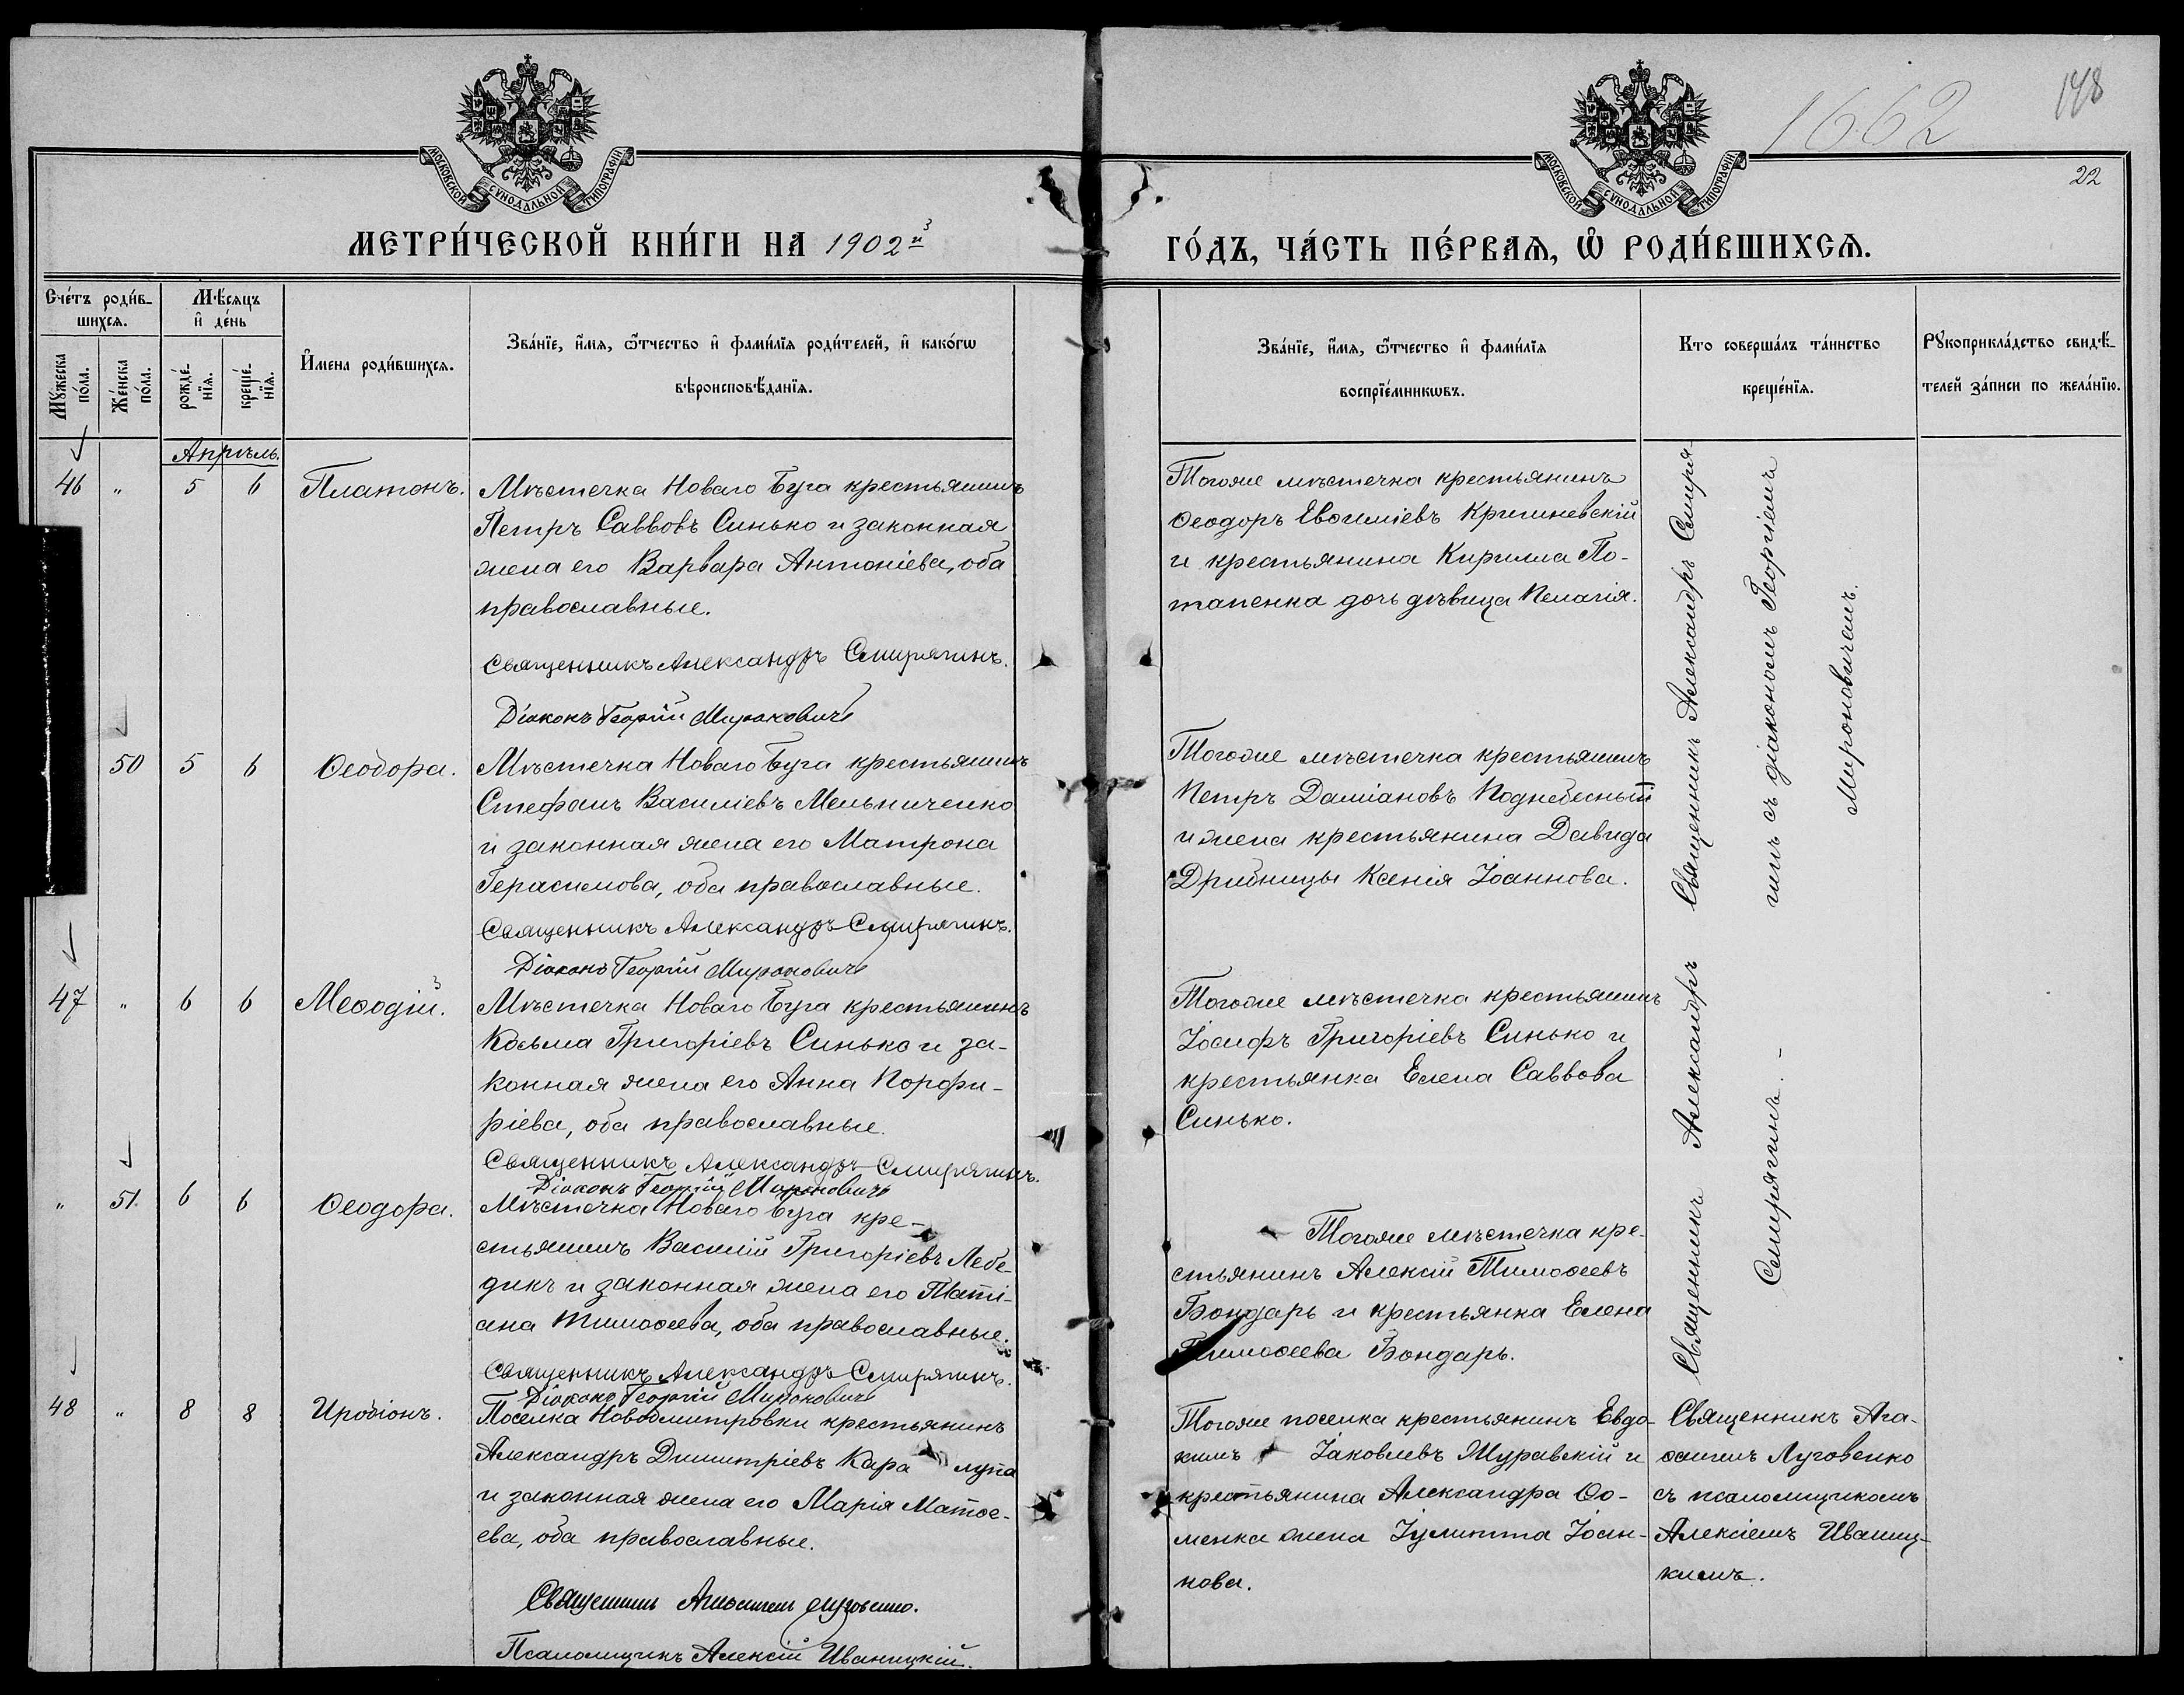 1662
148
22
МОСКОВСКОЙ СѴНОДАЛЬНОЙ ТИПОГРАФІИ
МОСКОВСКОЙ СѴНОДАЛЬНОЙ ТИПОГРАФІИ
МЕТРИ́ЧЕСКОЙ КНИ́ГИ НА 1902й
ГО́ДЪ, ЧА́СТЬ ПЕ́РВАѦ, Ѡ҆ РОДИ́ВШИХСѦ.
Сче́тъ роди́в-
шихсѧ.
Мꙋ́жеска по́ла.
Же́нска по́ла.
Мѣ́сѧцъ
и҆ де́нь
рожде́-
нїѧ.
креще́-
нїѧ.
И҆мена роди́вшихсѧ.
Зва́нїе, и҆́мѧ, ѻ҆́тчество и҆ фами́лїѧ роди́телей, и҆ како́гѡ
вѣроисповѣ́данїѧ.
Зва́нїе, и҆́мѧ, ѻ҆́тчество и҆ фами́лїѧ
воспрїе́мникѡвъ.
Кто соверша́лъ та́инство
креще́нїѧ.
Рꙋкоприкла́дство свидѣ́-
телей за́писи по жела́нїю.
Апрѣль.
46 " 5 6 Платонъ.
Мѣстечка Новаго Буга крестьянинъ
Петръ Саввовъ Синько и законная
жена его Варвара Антоніева, оба
православные.
Священникъ Александръ Смирягинъ.
Діаконъ Георгій Мироновичъ
Тогоже мѣстечка крестьянинъ
Ѳеодоръ Евѳиміевъ Кришневскій
и крестьянина Кирилла По-
тапенка дочь дѣвица Пелагія.
Священникъ Александръ Смиря-
гинъ съ діакономъ Георгіемъ
Мироновичемъ.
50 5 6 Ѳеодора.
Мѣстечка Новаго Буга крестьянинъ
Стефанъ Василіевъ Мельниченко
и законная жена его Матрона
Герасимова, оба православные.
Священникъ Александръ Смирягинъ.
Діаконъ Георгій Мироновичъ
Тогоже мѣстечка крестьянинъ
Петръ Даміановъ Поднебесный
и жена крестьянина Давида
Дрибницы Ксенія Іоаннова.
47 " 6 6 Меѳодій.
Мѣстечка Новаго Буга крестьянинъ
Косьма Григоріевъ Синько и за-
конная жена его Анна Порфи-
ріева, оба православные.
Священникъ Александръ Смирягинъ.
Діаконъ Георгій Мироновичъ
Тогоже мѣстечка крестьянинъ
Іосифъ Григоріевъ Синько и
крестьянка Елена Саввова
Синько.
Священникъ Александръ
Смирягинъ.-
" 51. 6 6 Ѳеодора.
Мѣстечка Новаго Буга кре-
стьянинъ Василій Григоріевъ Лебе-
дикъ и законная жена его Таті-
ана Тимоѳеева, оба православные.
Священникъ Александръ Смирягинъ.
Діаконъ Георгій Мироновичъ
Тогоже мѣстечка кре-
стьянинъ Алексій Тимоѳеевъ
Бондарь и крестьянка Елена
Тимоѳеева Бондарь.
48 " 8 8 Иродіонъ.
Поселка Новодмитровки крестьянинъ
Александръ Димитріевъ Кара лупа
и законная жена его Марія Матѳе-
ева, оба православные.
Священникъ Агаѳангелъ Луговенко.
Псаломщикъ Алексій Иваницкій.
Тогоже поселка крестьянинъ Евдо-
кимъ Іаковлевъ Журавскій и
крестьянина Александра Ѳо-
менка жена Іулитта Іоан-
нова.
Священникъ Ага-
ѳангелъ Луговенко
съ псаломщикомъ
Алексіемъ Иваниц-
кимъ.